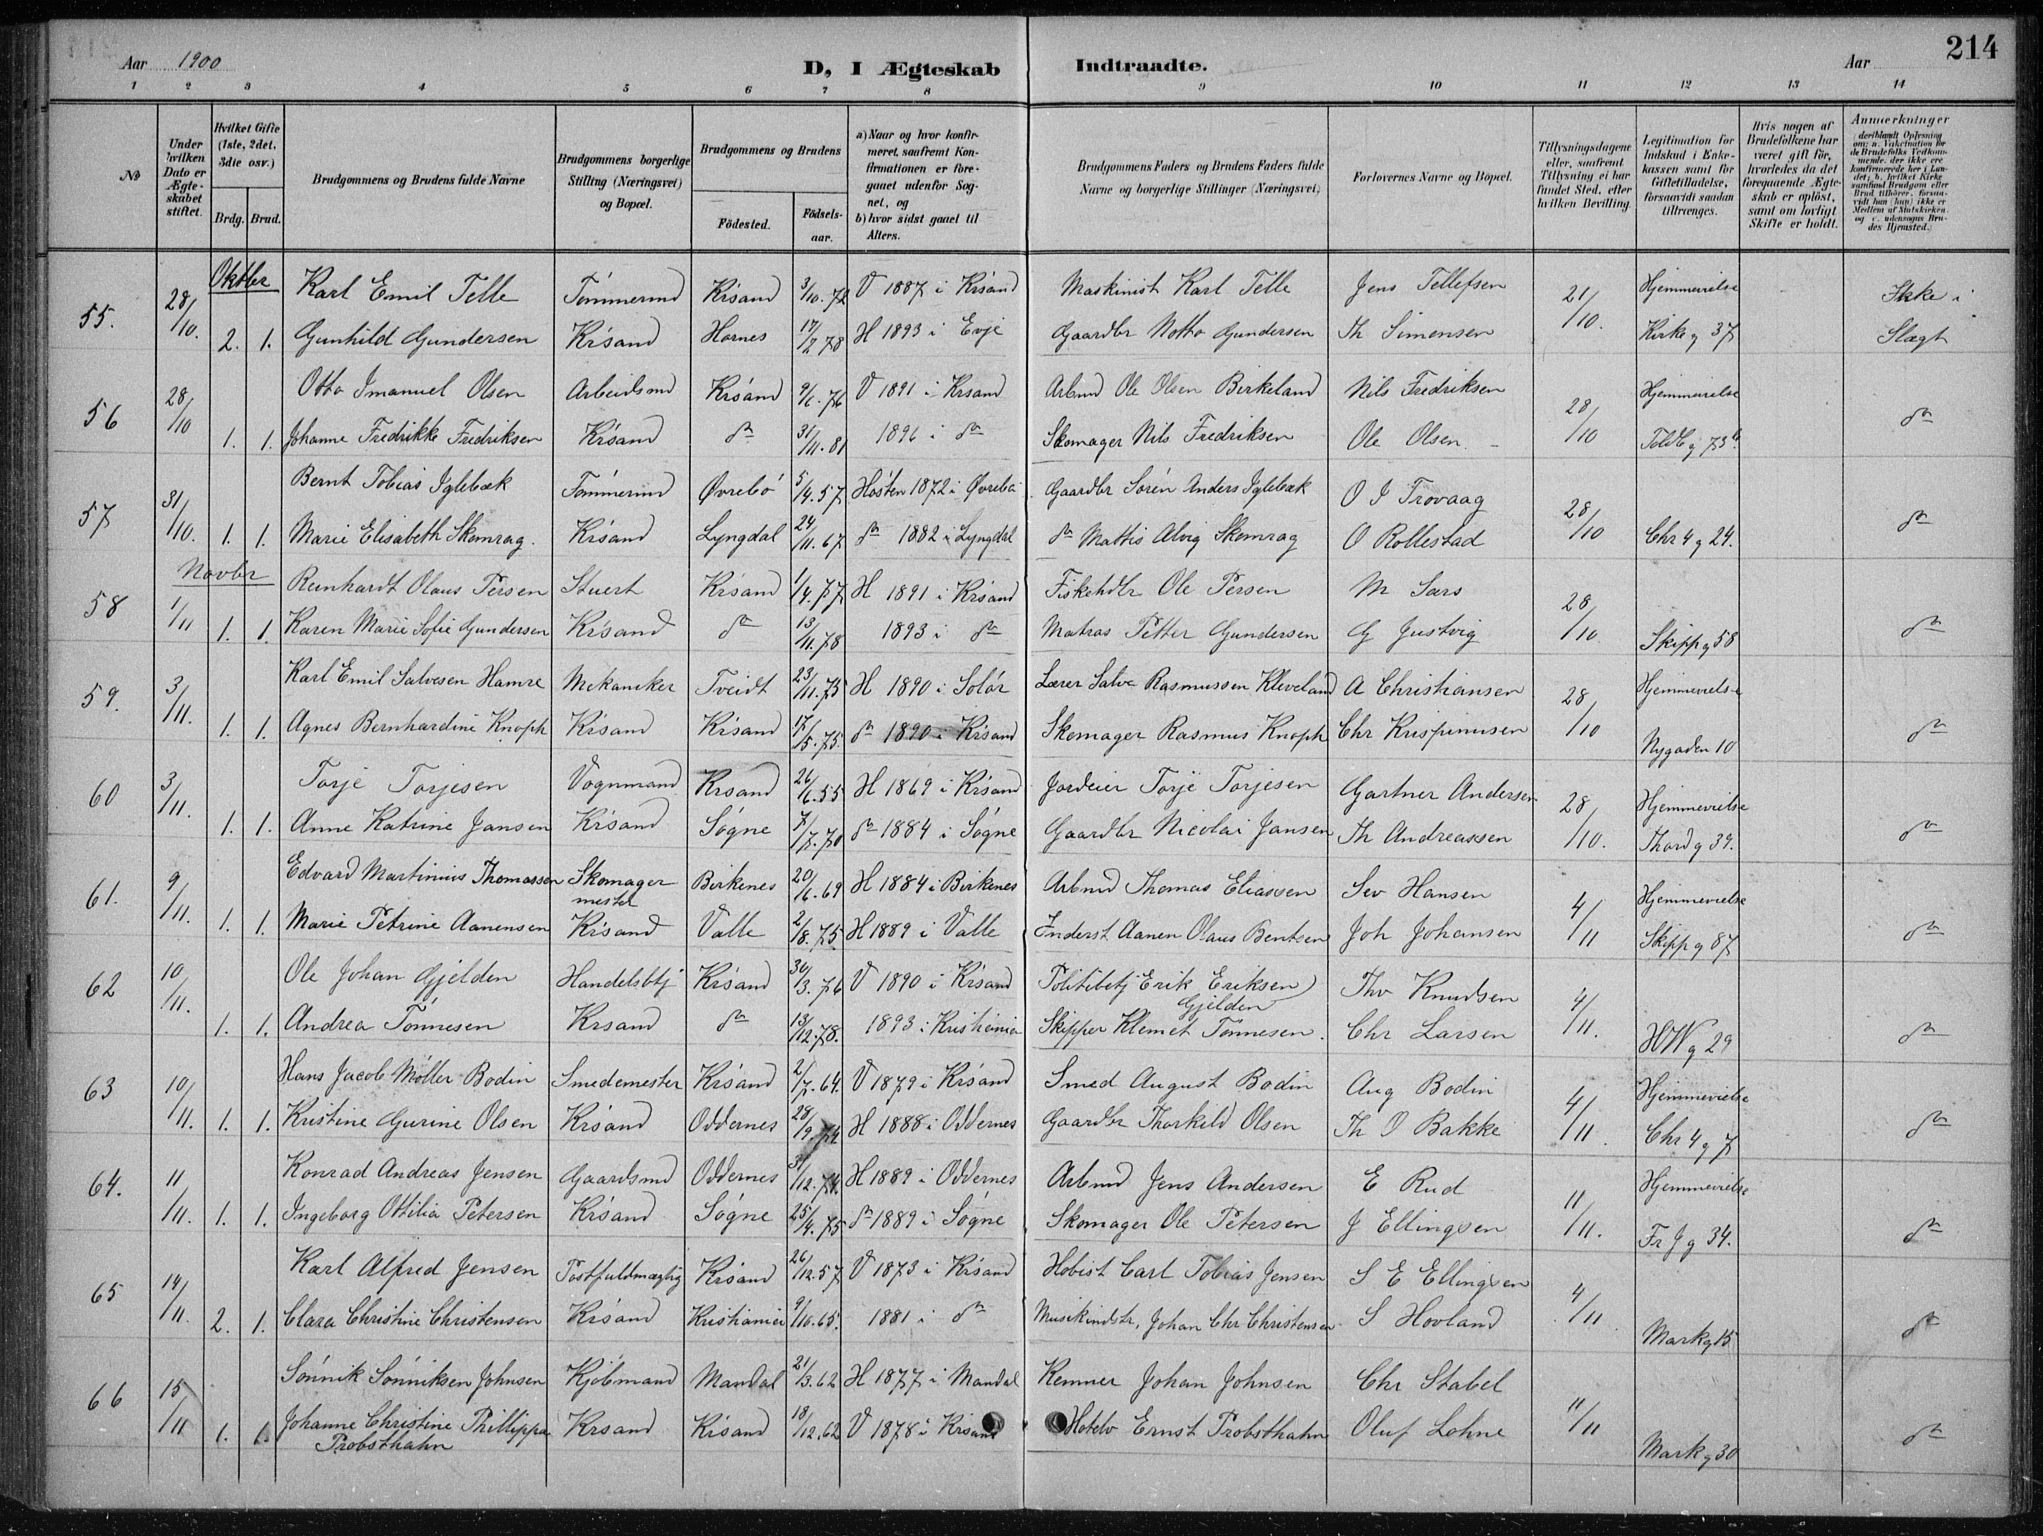 Aar 1900 D, I Ægteskab Indtraadte. Aar 214
1 2 3 4 5 6 7 8 9 10 11 12 13 14
No
Under hvilken Dato er Ægteskabet stiftet.
Hvilket Gifte (1ste, 2det, 3die osv.)
Brdg. Brud.
Brudgommens og Brudens fulde Navne
Brudgommens borgerlige Stilling (Næringsvei) og Bopæl.
Brudgommens og Brudens
Fødested. Fødselsaar.
a) Naar og hvor konfirmeret, saafremt Konfirmationen er foregaaet udenfor Sognet, og
b) hvor sidst gaaet til Alters.
Brudgommens Faders og Brudens Faders fulde Navne og borgerlige Stillinger (Næringsvei)
Forlovernes Navne og Bopæl.
Tillysningsdagene eller, saafremt Tillysning ei har fundet Sted, efter hvilken Bevilling.
Legitimation for Indskud i Enkekassen samt for Giftetilladelse, forsaavidt saadan tiltrænges.
Hvis nogen af Brudefolkene har været gift før, hvorledes da det foregaaende Ægteskab er opløst, samt om lovligt Skifte er holdt.
Anmærkninger
Oktbr
55. 28/10. Karl Emil Telle Tømmermd Krsand 3/10.72 V 1887 i Krsand Maskinist Karl Telle Jens Tellefsen 21/10. Hjemmevielse Ikke i
2. 1. Gunhild Gundersen Krsand Hornes 17/2 78 H 1893 i Evje Gaardbr Notto Gundersen Th Simonsen Kirkeg 37 Slægt
56 28/10 Otto Imanuel Olsen Arbeidsmd Krsand 9/6.76 V 1891 i Krsand Arbmd Ole Olsen Birkeland Nils Fredriksen 28/10 Hjemmevielse do
1. 1. Johanne Fredrikke Fredriksen Krsand do 31/11.81 1896 i do Skomager Nils Fredriksen Ole Olsen Toldbg 73
57 31/10. Bernt Tobias Iglebæk Tømmermd Øvrebø 5/4.57 Høsten 1872 i Øvrebø Gaardbr Søren Anders Iglebæk O I Trovaag 28/10 do
1. 1. Marie Elisabeth Skomrag. Krsand Lyngdal 24/11.67 do 1882 i Lyngdal do Mattis Alvig Skomrag O Rollestad Chr 4 g 24.
Novbr
58 1/11 Reinhardt Olaus Persen Stuert Krsand 1/4.77 H 1891 i Krsand Fiskehdlr Ole Persen M Sars 28/10
1. 1. Karen Marie Sofie Gundersen Krsand do 13/11.78 1893 i do Matros Petter Gundersen G Justvig Skippg 58 do
59. 3/11. Karl Emil Salvesen Hamre Mekaniker Tveidt 23/11.75 H 1890 i Solør Lærer Salve Rasmussen Kleveland A Christiansen 28/10 Hjemmevielse
1. 1. Agnes Bernhardine Knoph Krsand Krsand 17/5.75. do 1890 i Krsand Skomager Rasmus Knoph Chr Krispinusen Nygaden 10 do
60 3/11. Torje Torjesen Vognmand Krsand 26/6.55 H 1869 i Krsand Jordeier Torje Torjesen Gartner Andersen 28/10. Hjemmevielse
1. 1. Anne Katrine Jansen Krsand Søgne 7/7.70 do 1884 i Søgne Gaardbr Nicolai Jansen Th Andreassen Thordg 39. do
61. 9/11. Edvard Martinius Thomassen Skomagermester Birkenes 20/6.69 H 1884 i Birkenes Arbmd Thomas Eliassen Sev Hansen 4/11 Hjemmevielse
1. 1. Marie Petrine Aanensen Krsand Valle 2/8.75. H 1889 i Valle Inderst Aanen Olaus Bentsen Joh Johansen Skippg 87 do
62 10/11. Ole Johan Gjelden Handelsbtj Krsand 30/3.76 V 1890 i Krsand Politibetj Erik Eriksen Gjelden Thv Knudsen 4/11.
1. 1. Andrea Tønnesen Krsand do 13/12.78. 1893 i Kristiania Skipper Klemet Tønnesen Chr Larsen HWg 29 do
63 10/11. Hans Jacob Møller Bodin Smedemester Krsand 2/7.64. V 1879 i Krsand Smed August Bodin Aug Bodin 4/11. Hjemmevielse
1. 1. Kristine Gurine Olsen Krsand Oddernes 28/9.74 H 1888 i Oddernes Gaardbr Thorkild Olsen Th O Bakke Chr 4 g 7 do
64. 11/11. Konrad Andreas Jensen Gaardsmd Oddernes 31/12.74. H 1889 i Oddernes Arbmd Jens Andersen E Rud 11/11. Hjemmevielse
1. 1. Ingeborg Ottilia Petersen Krsand Søgne 25/4.75 do 1889 i Søgne Skomager Ole Petersen J Ellingsen Fr J g 34. do
65 14/11. Karl Alfred Jensen Postfuldmægtig Krsand 26/12.57 V 1873 i Krsand Hobist Carl Tobias Jensen S E Ellingsen 4/11
2. 1. Clara Christine Christensen Krsand Kristiania 9/10.65. 1881 i do Musikindstr. Johan Chr Christensen S Hovland Markg 15 do
66 15/11 Sønnik Sønniksen Johnsen Kjøbmand Mandal 21/3.62 H 1877 i Mandal Kemner Johan Johnsen Chr Stabel 11/11
1. 1. Johanne Christine Phillippa Probsthahn Krsand Krsand 18/12.62 V 1878 i Krsand Hotelv Ernst Probsthahn Oluf Lohne Markg 30 do